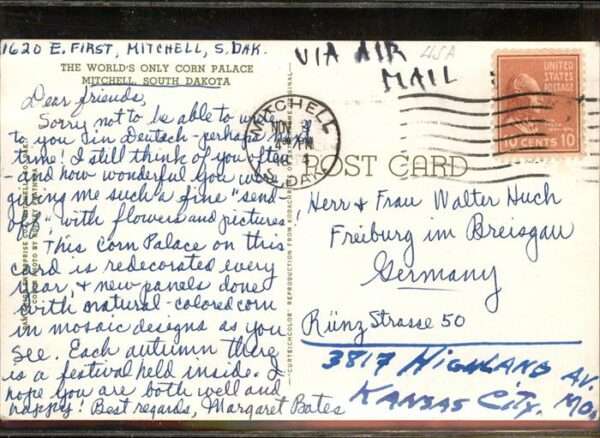 1620 E. FIRST, MITCHELL, S. DAK.
THE WORLD'S ONLY CORN PALACE
MITCHELL, SOUTH DAKOTA
Dear friends,
Sorry not to be able to write
to you in Deutsch - perhaps next
time! I still think of you often
- and how wonderful you were
giving me such a fine "send-
off" with flowers and pictures.
This Corn Palace on this
card is redecorated every
year, & new panels done
with natural-colored corn
in mosaic designs as you
see. Each autumn there
is a festival held inside. I
hope you are both well and
happy! Best regards, Margaret Bates
VIA AIR
MAIL
USA
UNITED
STATES
POSTAGE
10 CENTS 10
MITCHELL
NOV
PM
S. DAK.
POST CARD
Herr & Frau Walter Huch
Freiburg im Breisgau
Germany
Rünz Strasse 50
3817 HIGHLAND AV.
KANSAS CITY, MO.
"CURTEICHCOLOR" REPRODUCTION FROM KODACHROME